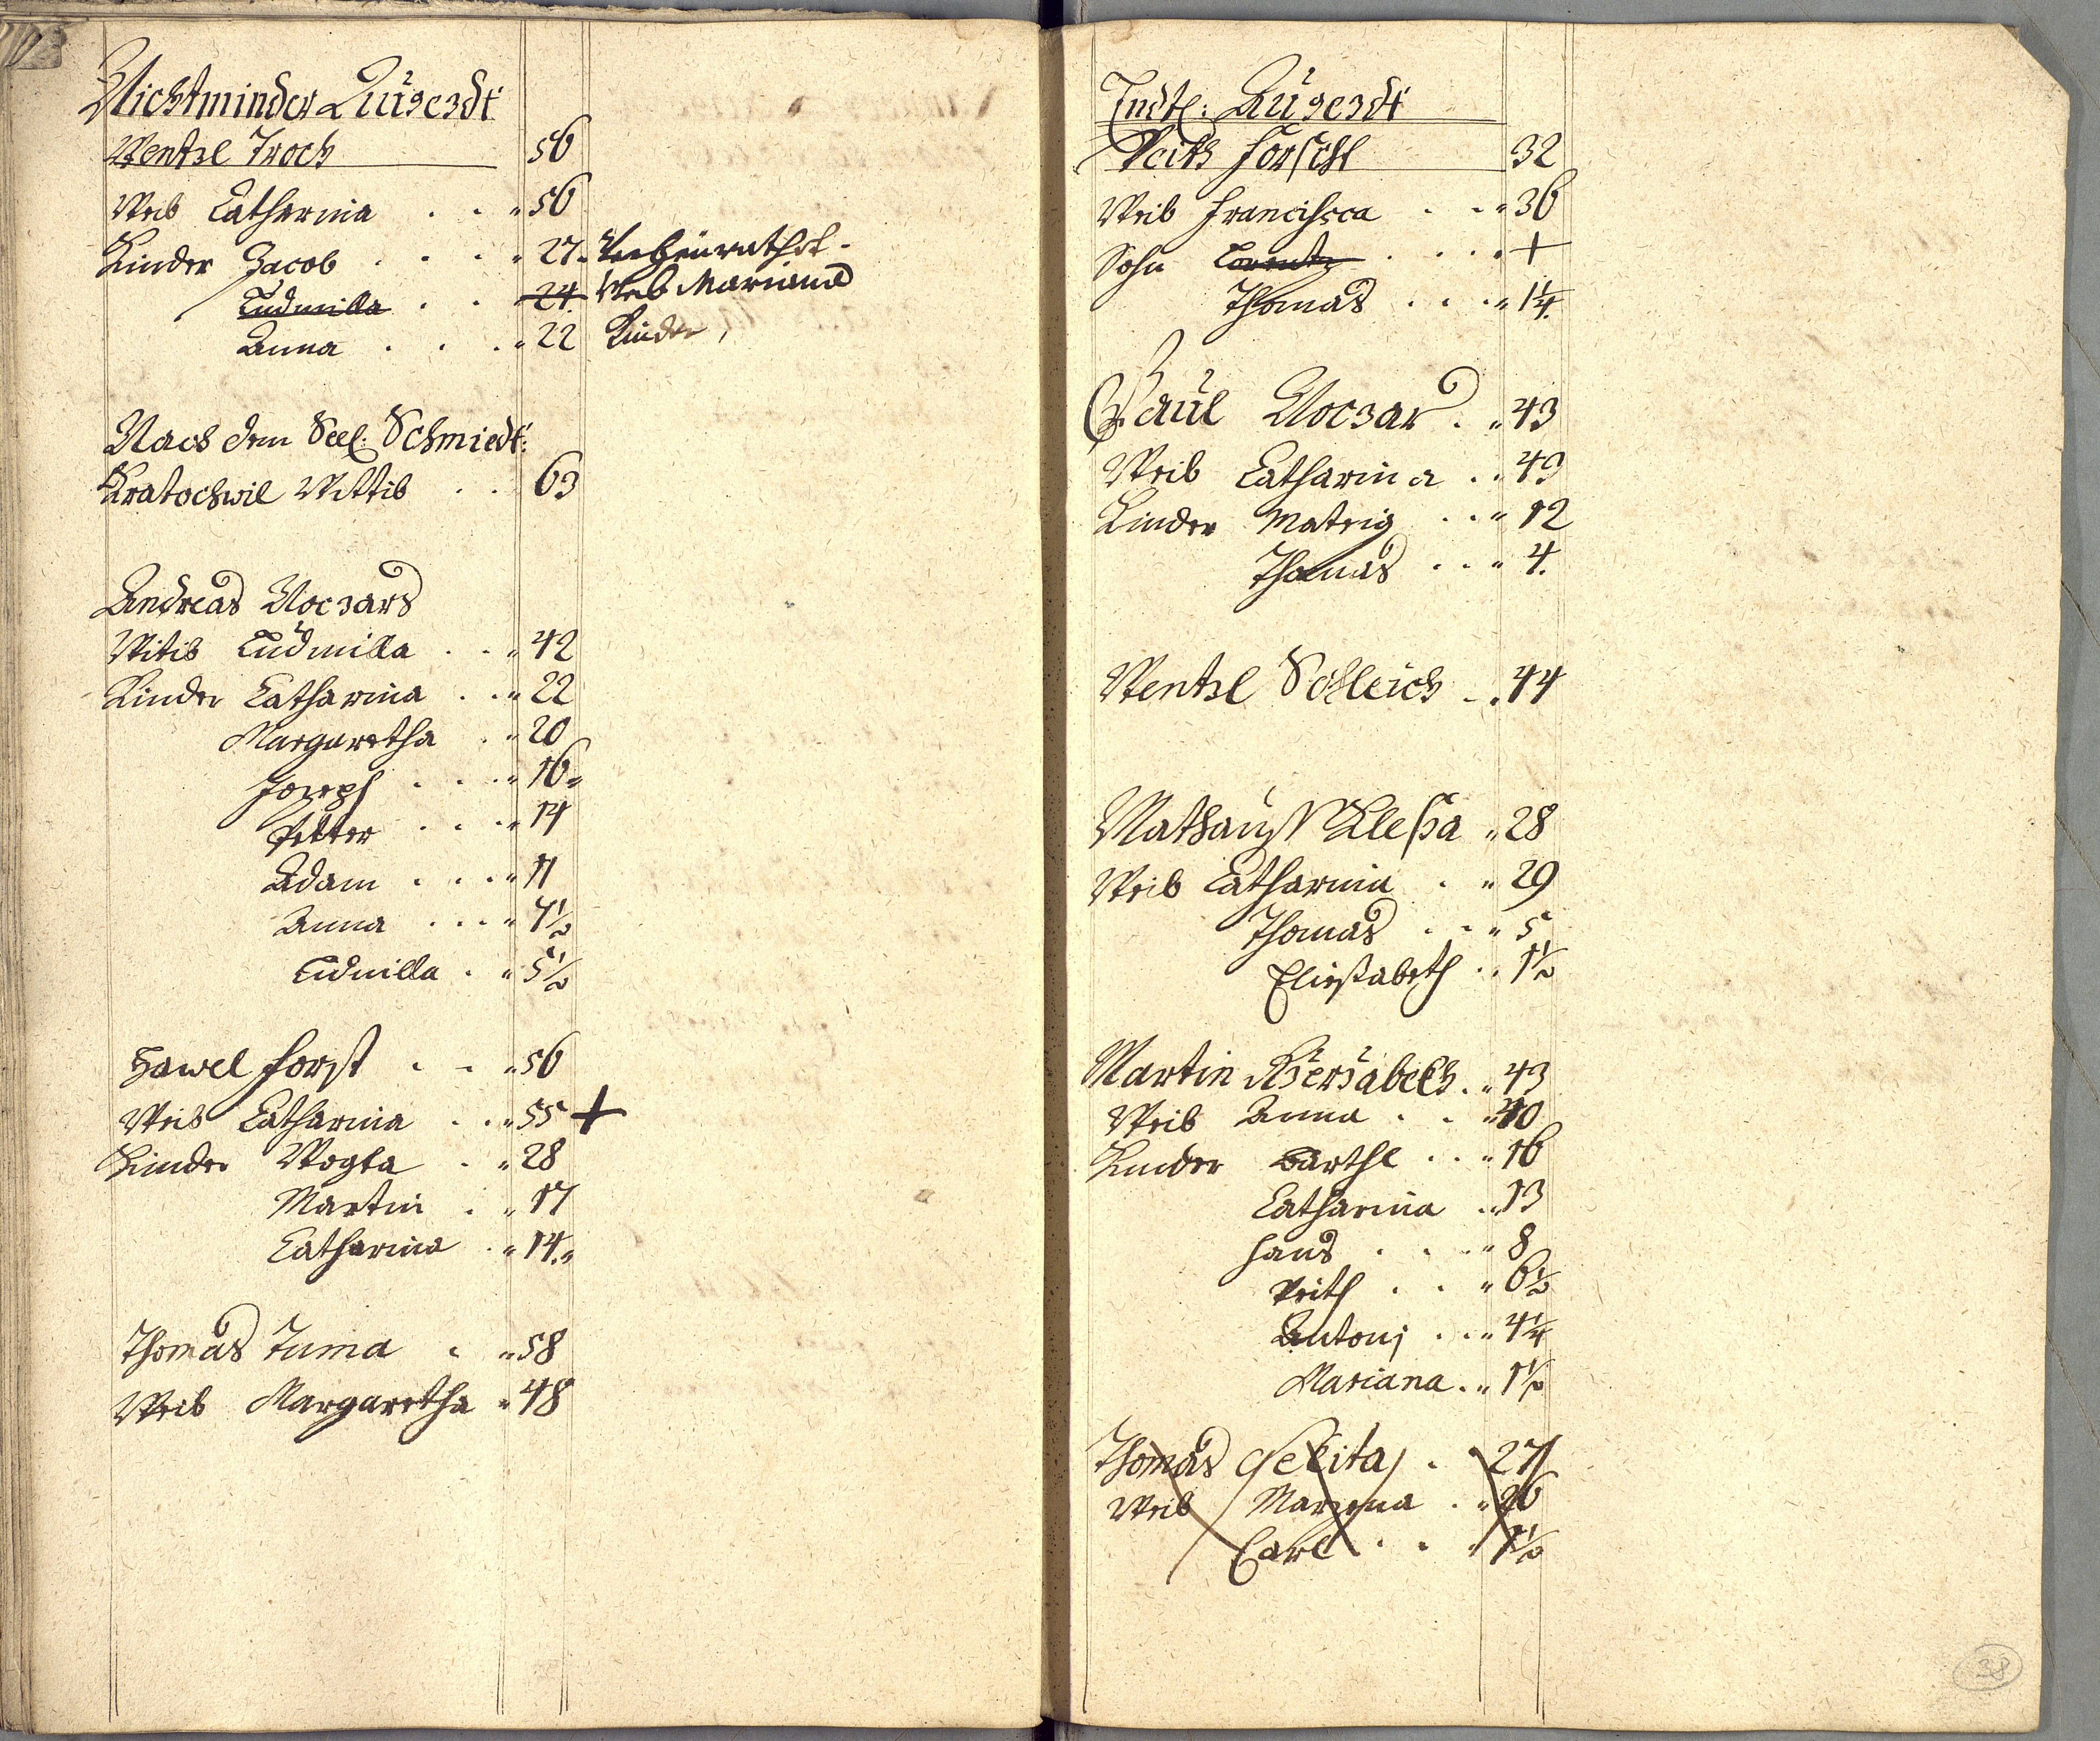 Nichtminder Lügerdt
Wentzl Troch 56
Weib Catharina . . " 56
Kinder Jacob . . . " 27. Verheürathet.
Ludmilla . . 24. Weib Mariana
Anna . . . " 22 Kinder,
Nach dem Seel: Schmiedt:
Kratochwil Wittib . . 63
Andreas Koczars
Witib Ludmilla . . " 42
Kinder Catharina . . " 22
Margaretha . " 20
Joseph . . . " 16 "
Petter . . . " 14
Adam . . . " 11
Anna . . . " 7½
Ludmilla . " 5½
Hawel Forst . . " 56
Weib Catharina . . " 55 +
Kinder Wogta . " 28
Martin . " 17
Catharina . " 14. "
Thomas Tuma . " 58
Weib Margaretha " 48
Veith Forschl 32
Weib Francisca . . " 36
Sohn Lorentz . . . . +
Thomas . . . " 1¼.
Paul Koczar . " 43
Weib Catharina . . 49
Kinder Mateig . . " 12
Thomas . . " 4.
Wentzl Schleich . . 44
Mathauss Klessa " 28
Weib Catharina . " 29
Thomas . . " 5
Eliessabeth . . 1½
Martin . " 43
Weib Anna . . " 40
Kinder Barthl . . " 16
Catharina . " 13
Hans . . . " 8
Veith . . " 6½
Antonj . . " 4¼
Mariana . " 1½
Thomas . 27
Weib Maryana . " 26
Carl . . . 1½
38